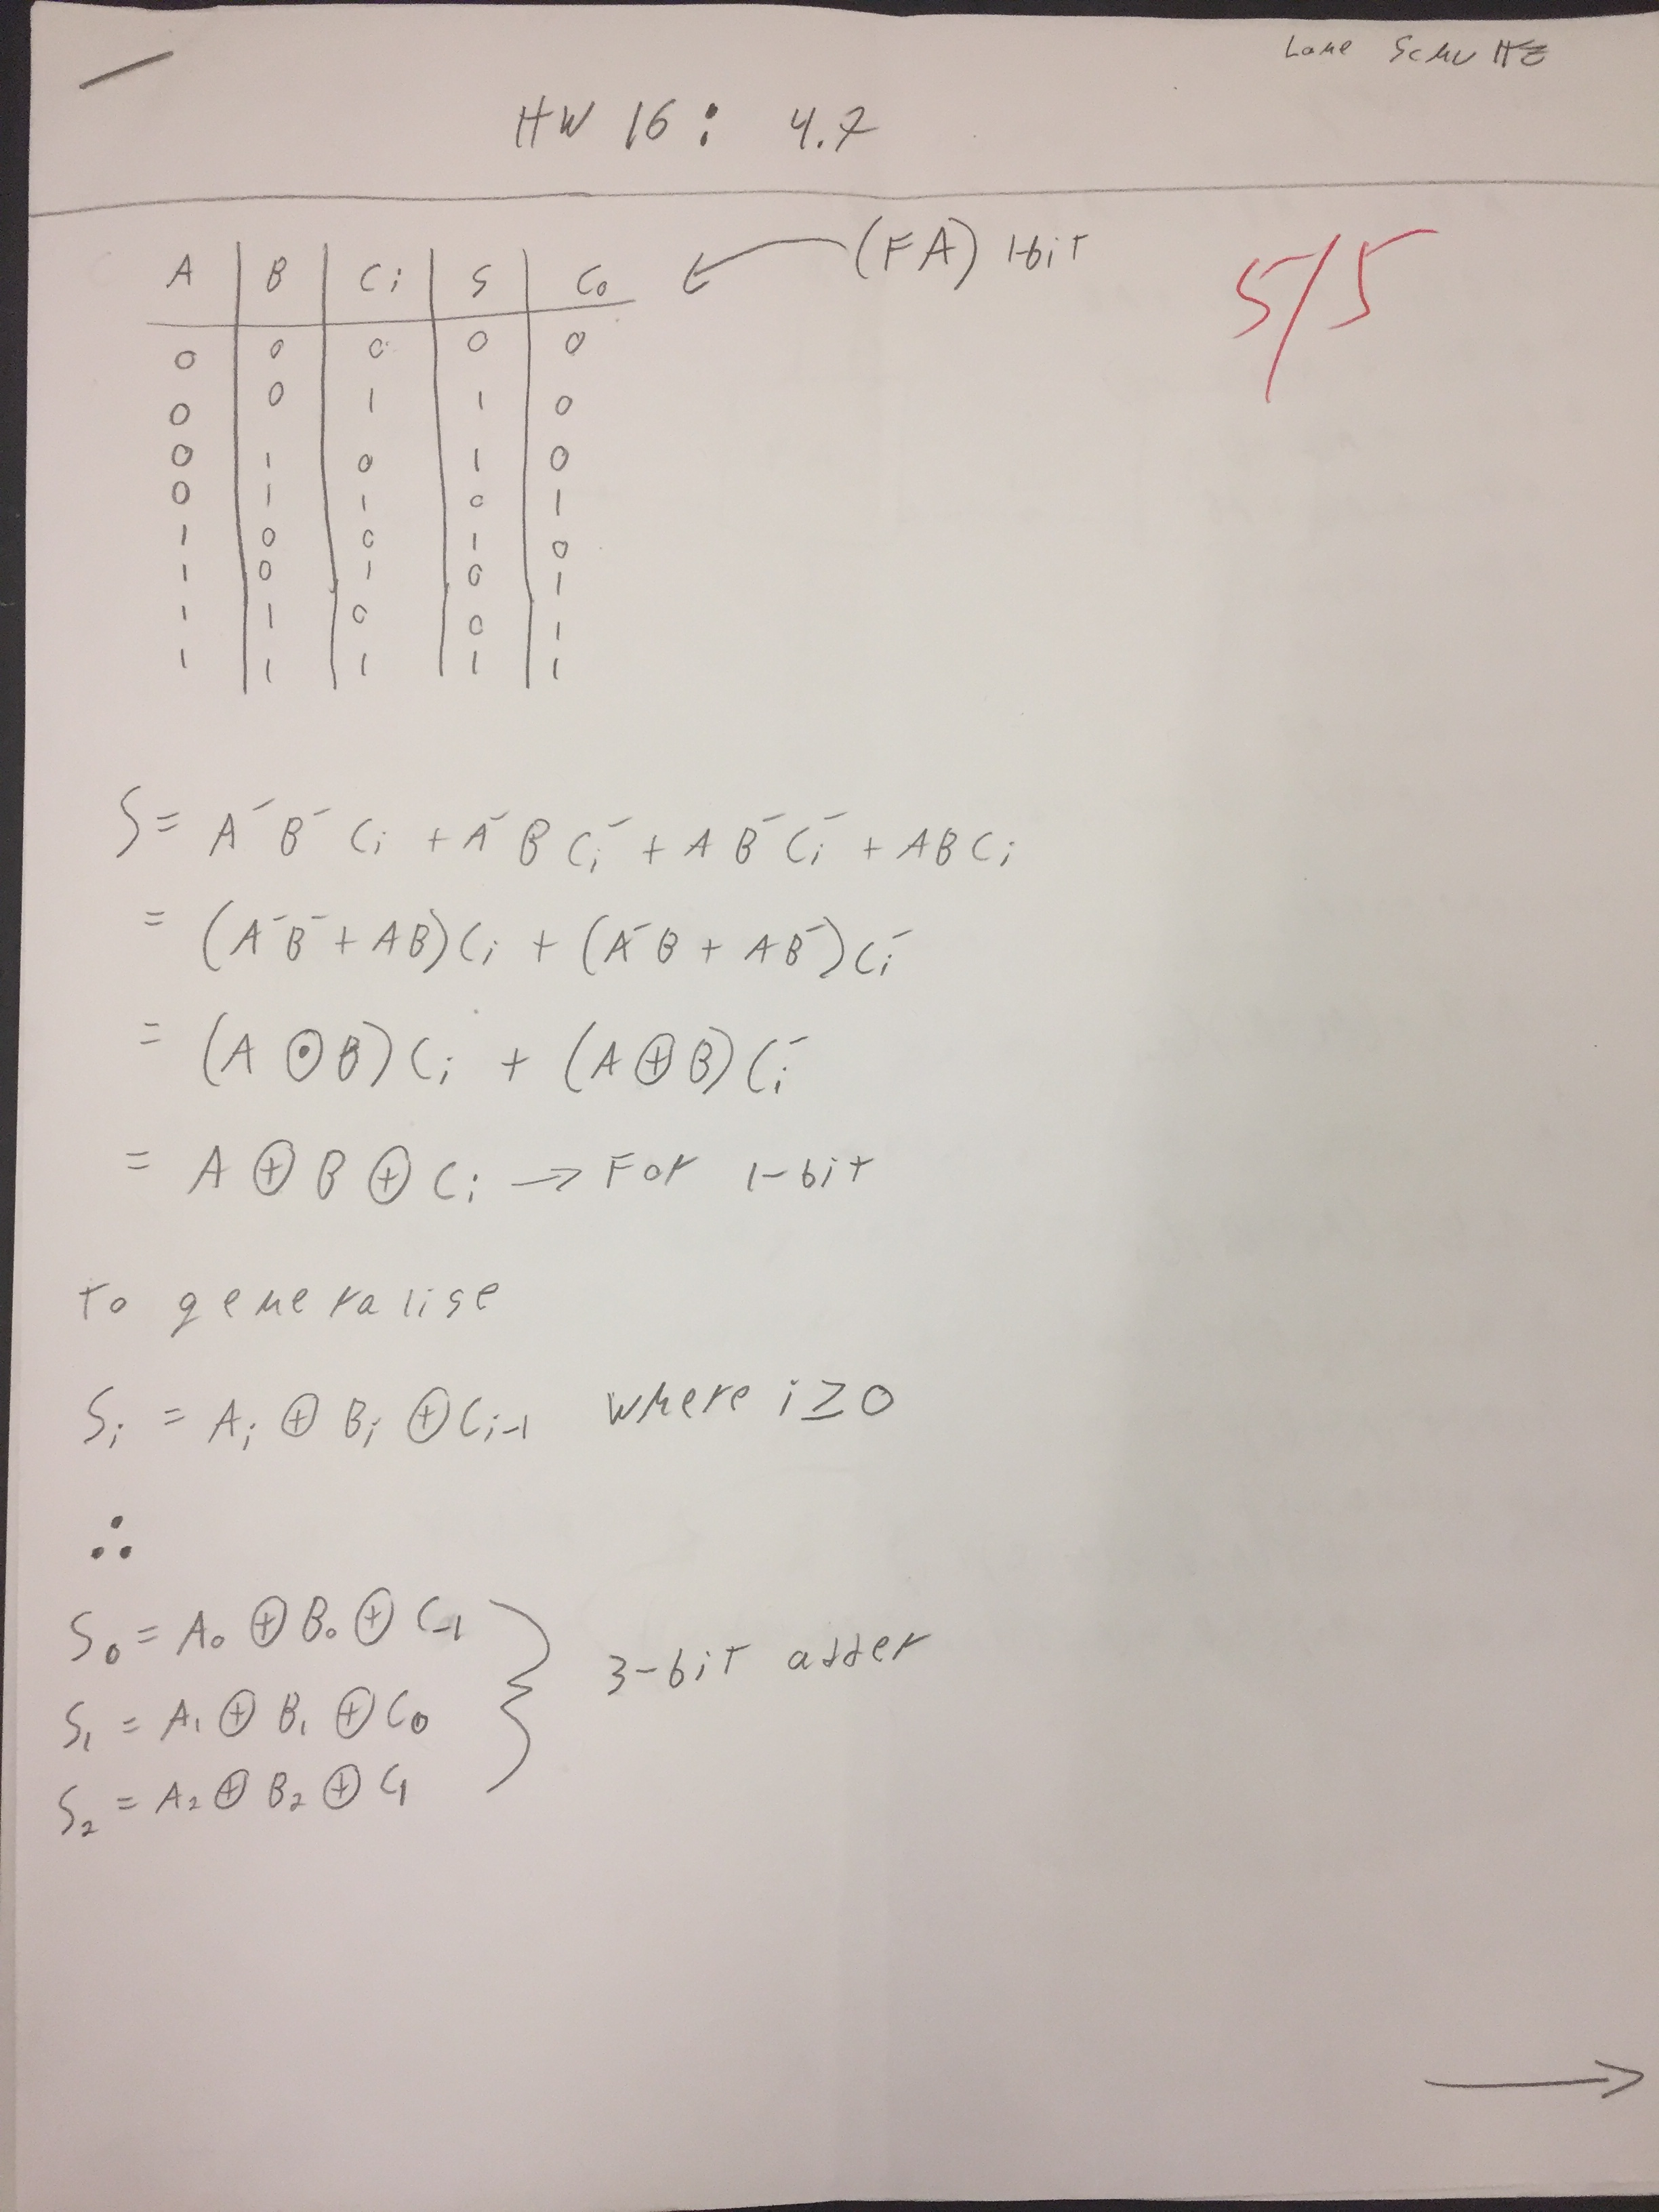 Lane Schultz
HW 16: 4.7
(FA) 1-bit
5/5
A B Ci S Co
0 0 0 0 0
0 0 1 1 0
0 1 0 1 0
0 1 1 0 1
1 0 0 1 0
1 0 1 0 1
1 1 0 0 1
1 1 1 1 1
S = A⁻ B⁻ Ci + A⁻ B Ci⁻ + A B⁻ Ci⁻ + A B Ci
= (A⁻B⁻ + AB)Ci + (A⁻B + AB⁻)Ci⁻
= (A ⊙ B)Ci + (A ⊕ B)Ci⁻
= A ⊕ B ⊕ Ci → For 1-bit
to generalise
Si = Ai ⊕ Bi ⊕ Ci-1 where i ≥ 0
∴
S₀ = A₀ ⊕ B₀ ⊕ C₋₁
S₁ = A₁ ⊕ B₁ ⊕ C₀
S₂ = A₂ ⊕ B₂ ⊕ C₁
} 3-bit adder
→